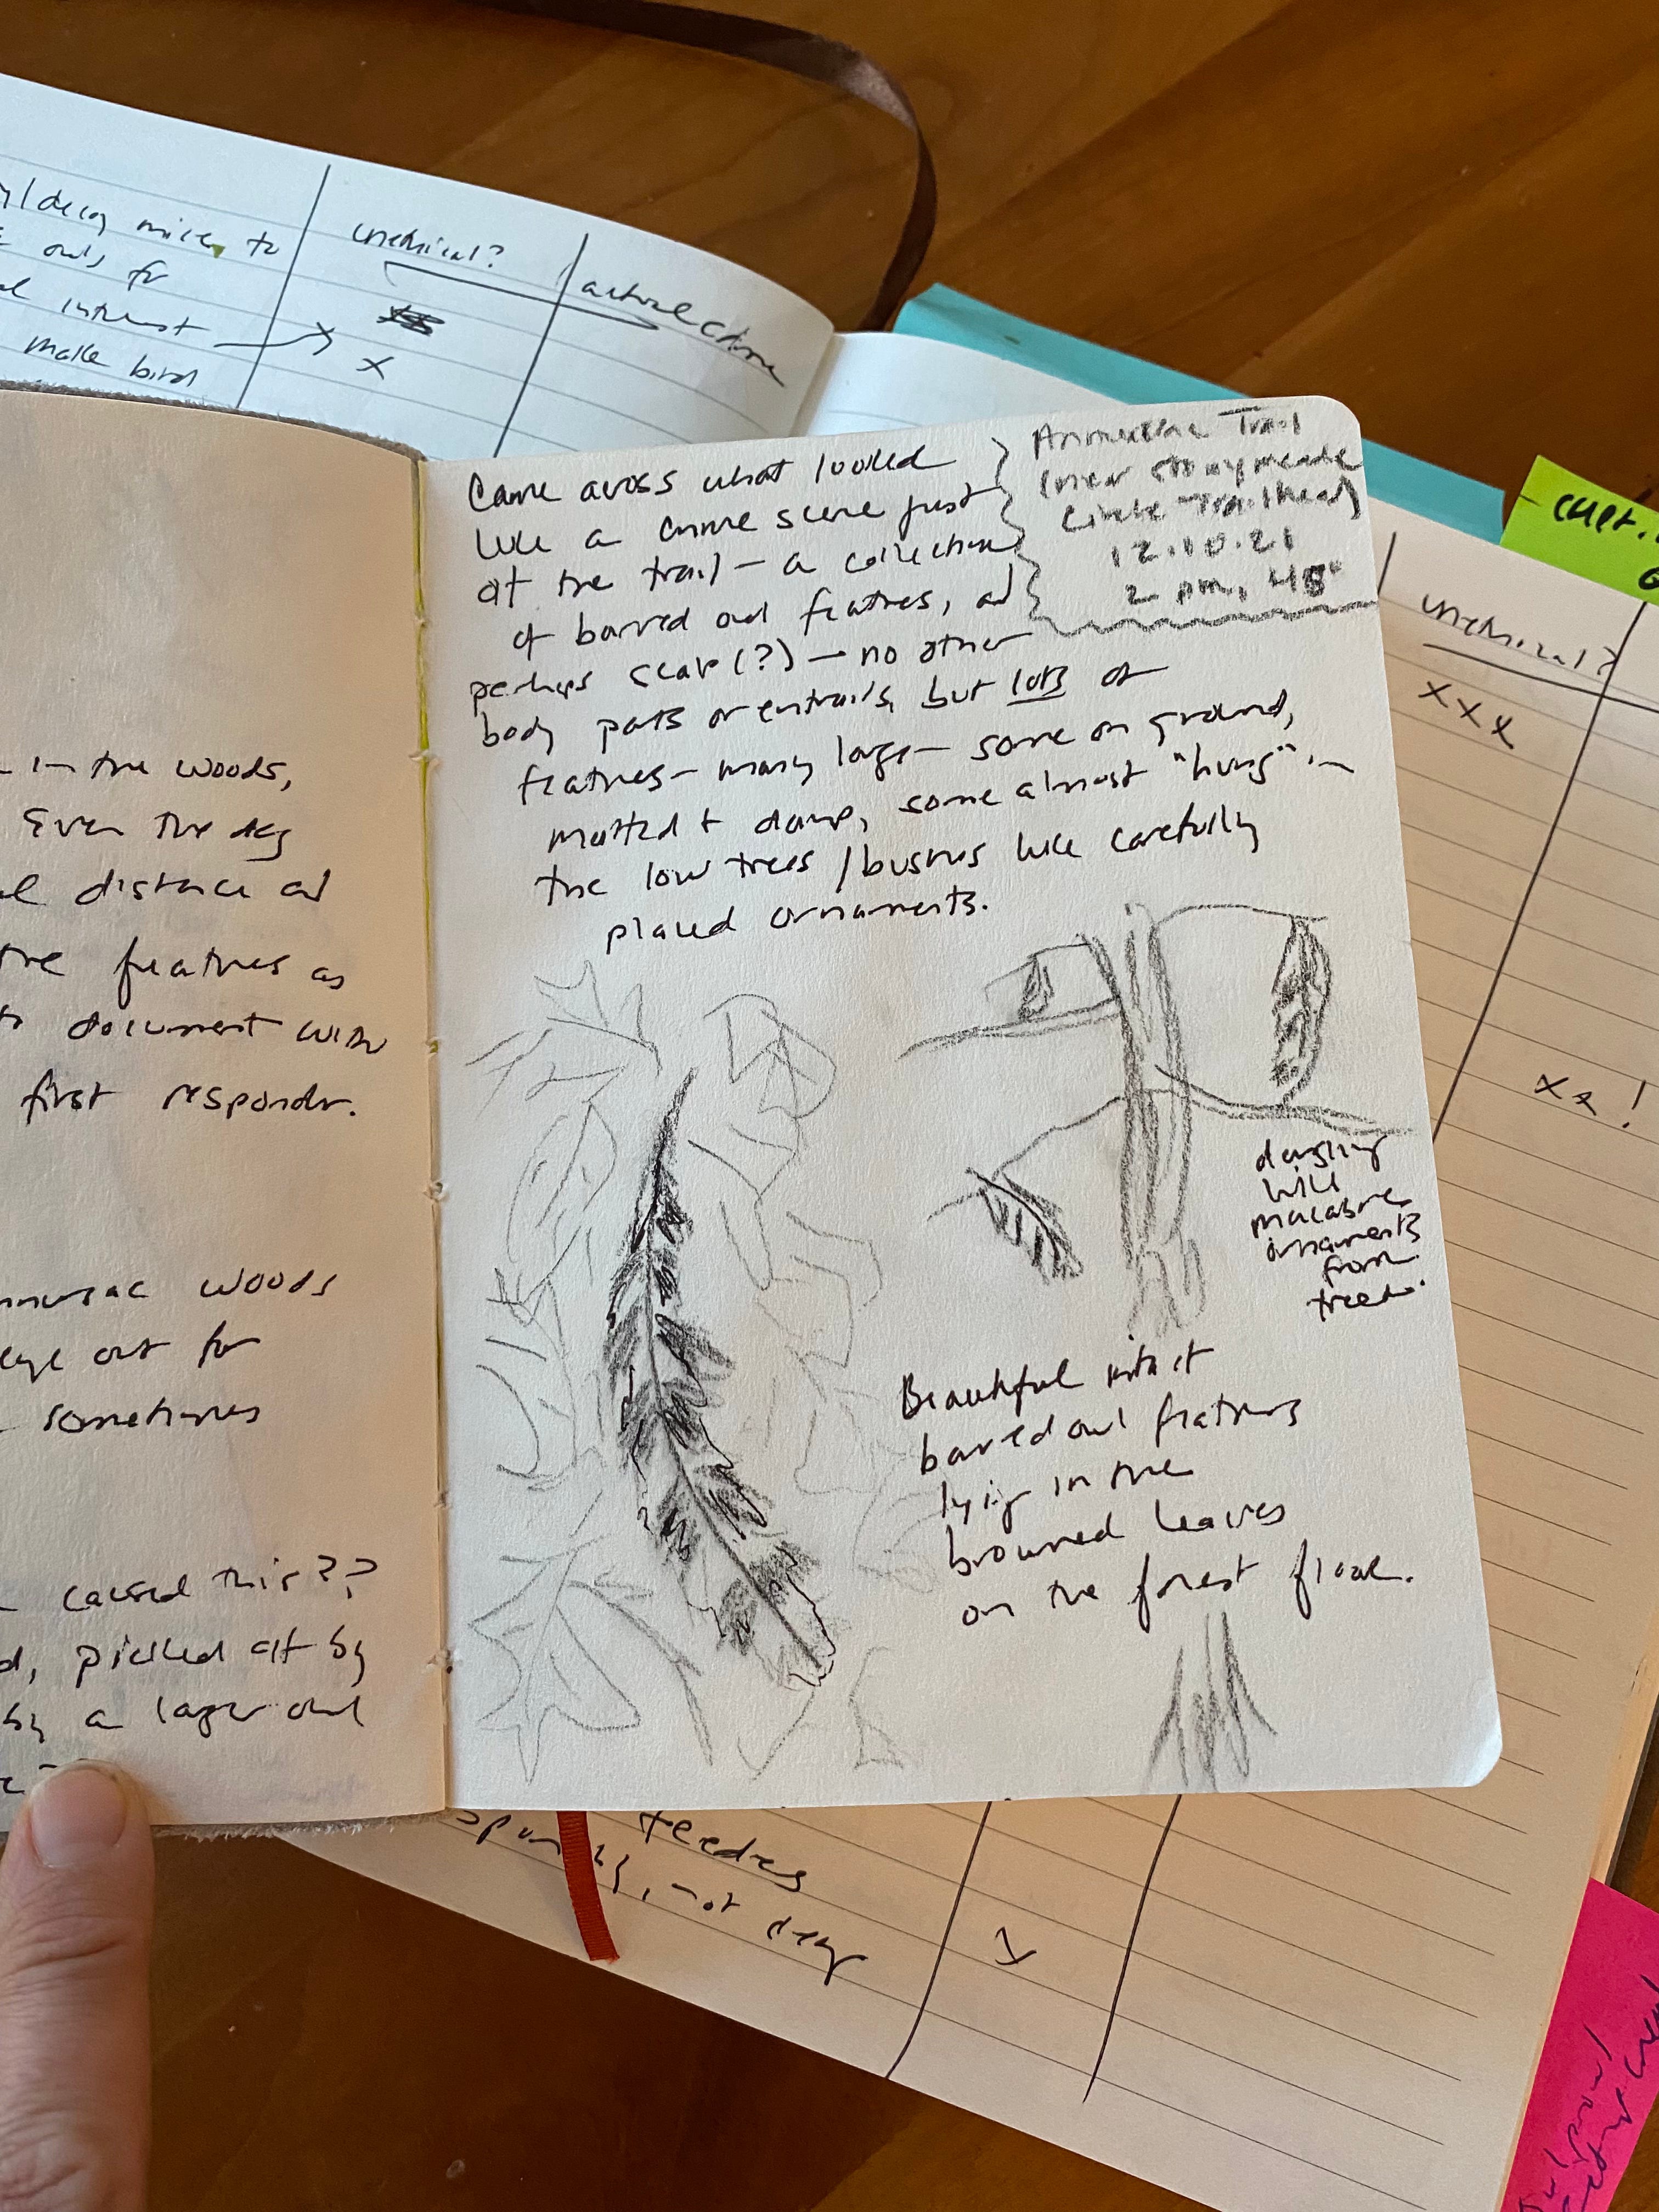 decoy mice, to
owls for
interest
make bird
unethical?
x
actual crime
in the woods,
Even the dog
distance and
the feathers as
to document with
first responder.
woods
eye out for
sometimes
caused this??
picked at by
by a larger owl
Came across what looked
like a crime scene just
off the trail – a collection
of barred owl feathers, and
perhaps scat (?) – no other
body parts or entrails, but lots of
feathers – many large – some on ground,
matted + damp, some almost "hung" in
the low trees / bushes like carefully
placed ornaments.
Trail
(near Stonymeade
Circle Trailhead)
12.10.21
2 pm, 48°
dangling
like
macabre
ornaments
from
trees.
Beautiful intact
barred owl feathers
lying in the
browned leaves
on the forest floor.
unethical?
xxx
xx!
feeders
, not